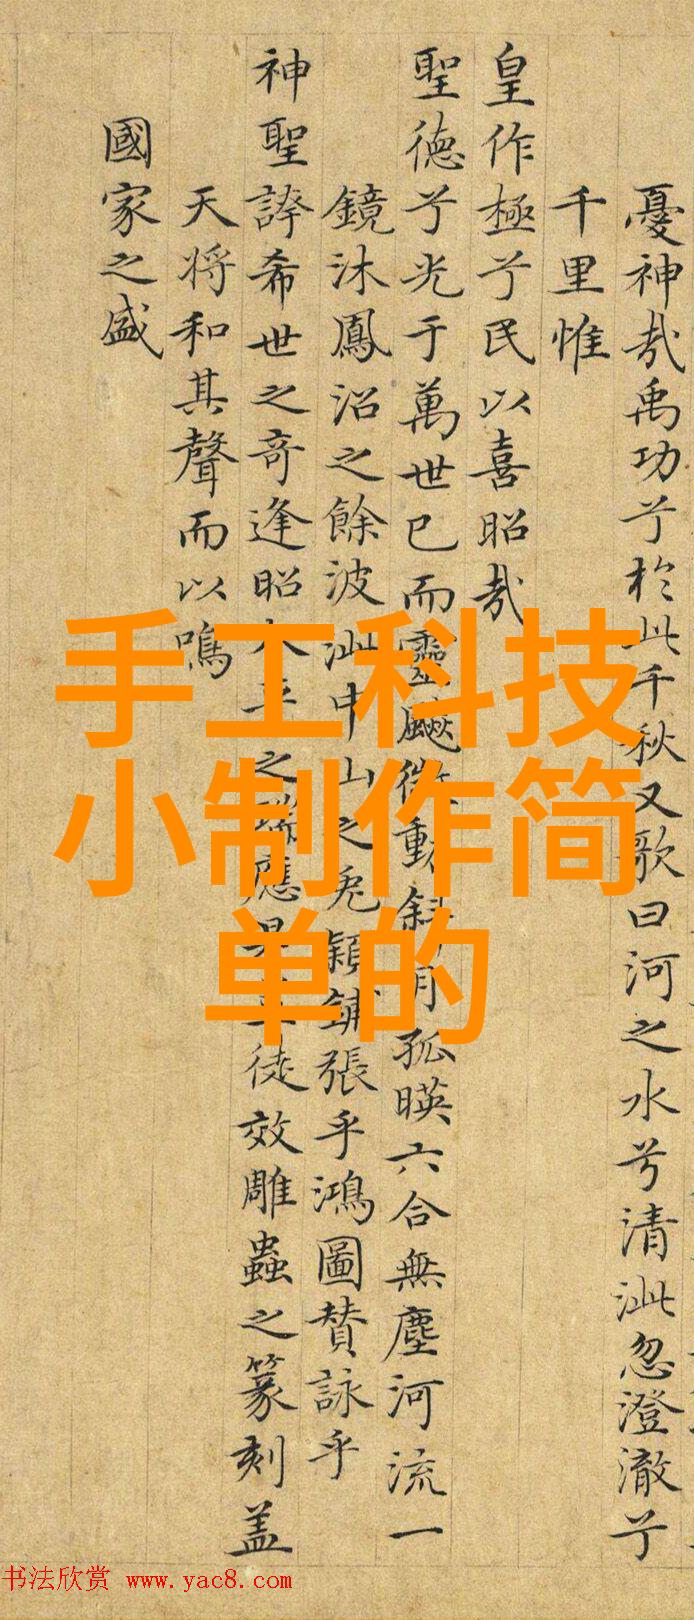 憂神哉禹功兮於此千秋又歌曰河之水兮清泚忽澄澈兮
千里惟
皇作極兮民以喜昭哉
聖德兮光于萬世已而靈飈微動斜月孤暎六合無塵河流一
鏡沐鳳沼之餘波泚中山之兎穎鋪張乎鴻圖賛詠乎
神聖誇希世之奇逢昭太平之瑞應是徒效雕蟲之篆刻盖
天将和其聲而以鳴
國家之盛
手工科技
小制作简
单的
书法欣赏 www.yac8.com